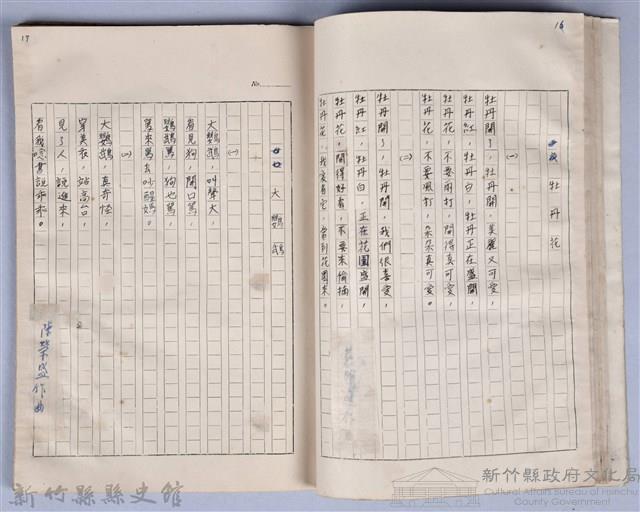 16
牡丹花
(一)
牡丹開了，牡丹開，美麗又可愛，
牡丹紅，牡丹白，牡丹正在盛開，
牡丹花，不要雨打，開得真可愛，
牡丹花，不要風打，朵朵真可愛。
(二)
牡丹開了，牡丹開，我們很喜愛，
牡丹紅，牡丹白，正在花園盛開，
牡丹花，開得好看，不要來偷摘，
牡丹花，我愛看它，常到花園來。
17
No.
大鸚鵡
(一)
大鸚鵡，叫聲大，
看見狗，開口罵，
鸚鵡罵，狗也罵，
罵來罵去吵醒媽。
(二)
大鸚鵡，真奇怪，
穿美衣，站高台，
見了人，說進來，
看我唸書說乖乖。
陳榮盛作曲
新竹縣縣史館
新竹縣政府文化局
Cultural Affairs Bureau of Hsinchu County Government